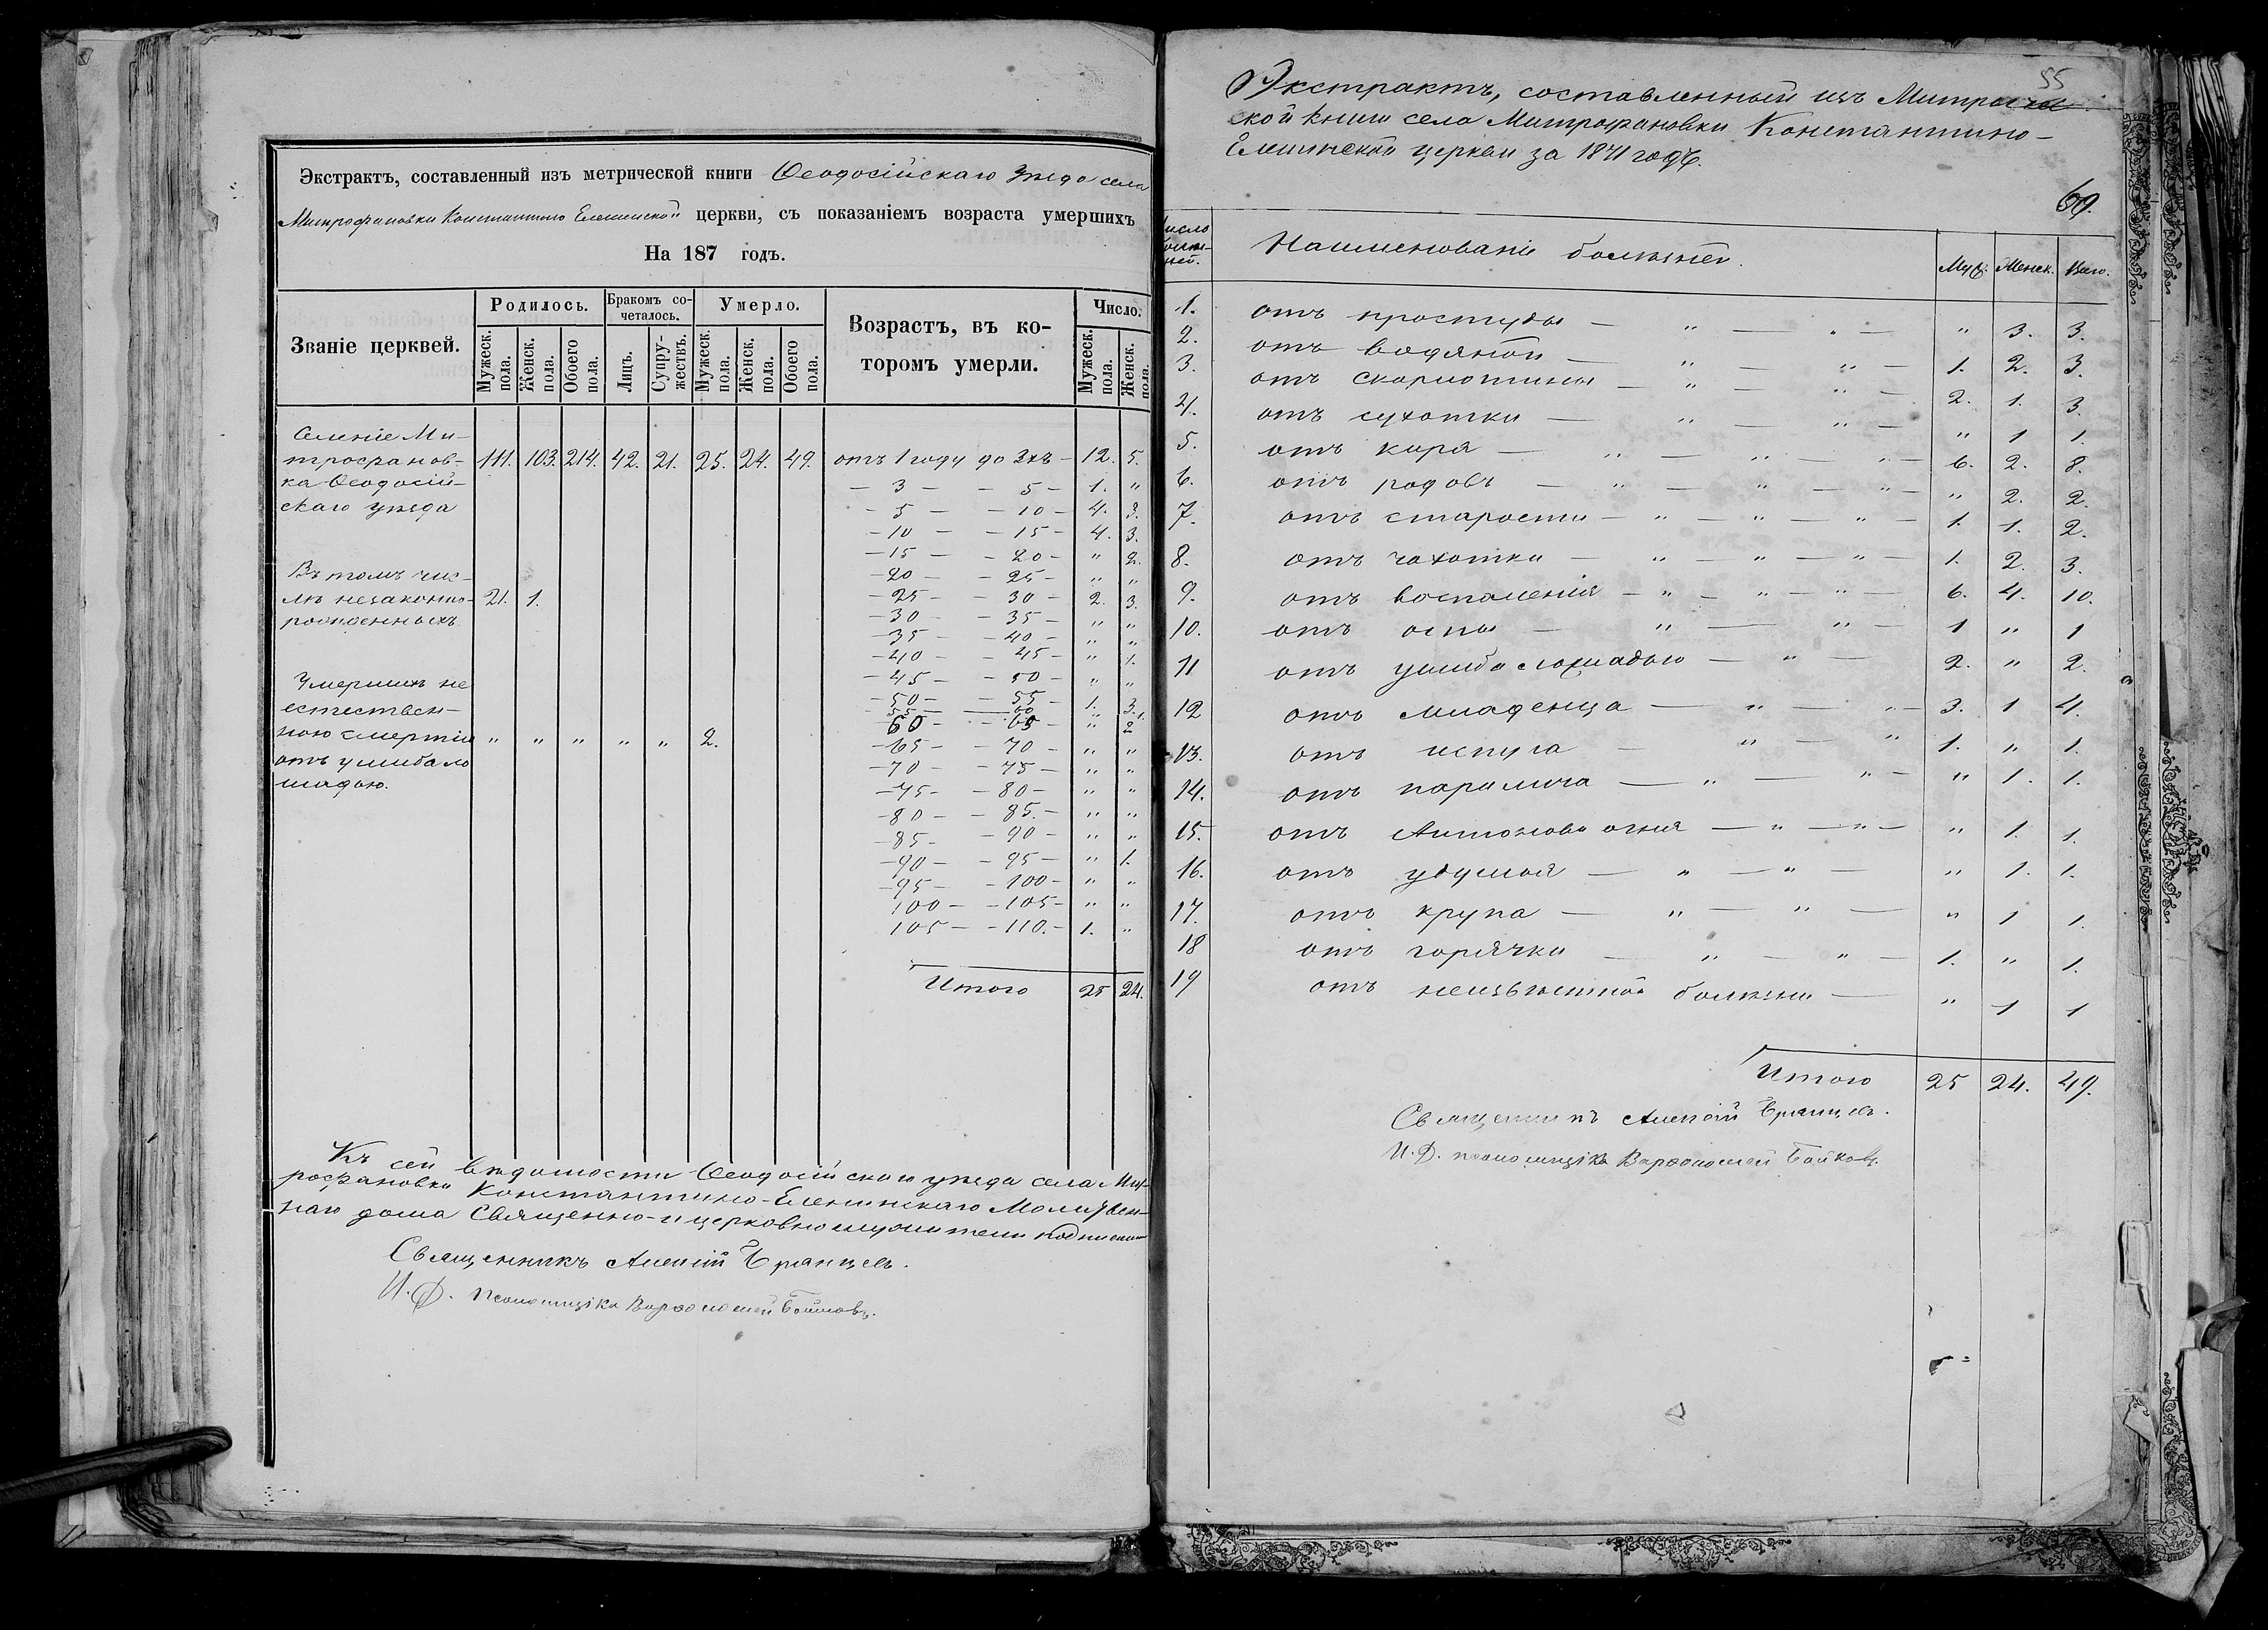 Экстрактъ, составленный изъ метрической книги Ѳеодосійскаго уѣзда села
Митрофановки Константино Еленинской церкви, съ показаніемъ возраста умершихъ
На 187 годъ.
Званіе церквей.
Родилось.
Бракомъ со-
четалось.
Умерло.
Возрастъ, въ ко-
торомъ умерли.
Число.
Мужеск. пола.
Женск. пола.
Обоего пола.
Лицъ.
Супру-
жествъ.
Мужеск. пола.
Женск. пола.
Обоего пола.
Мужеск. пола.
Женск. пола.
Селеніе Ми-
трофанов- 111. 103. 214. 42. 21. 25. 24. 49. отъ 1 году до 3хъ - 12. 5.
ка Ѳеодосій-
скаго уѣзда
- 3 - - 5 - 1. "
- 5 - - 10 - 4. 3.
- 10 - - 15 - 4. 3.
- 15 - - 20 - " 2.
- 20 - - 25 - " "
- 25 - - 30 - 2. 3.
- 30 - - 35 - " "
- 35 - - 40 - " "
- 40 - - 45 - " 1.
- 45 - - 50 - " "
- 50 - - 55 - 1. 3.
55 - 60 " 1.
60 - - 65 - " 2
- 65 - - 70 - " "
- 70 - - 75 - " "
- 75 - - 80 - " "
- 80 - - 85. - " "
- 85 - - 90 - " "
- 90 - - 95 - " 1.
- 95 - - 100 - " "
100 - - 105 - " "
105 - - 110. - 1. "
Итого 25 24.
Въ томъ чис-
лѣ незаконно- 21. 1.
рожденныхъ
Умершихъ не
естествен-
ною смертію " " " " " 2.
отъ ушиба ло
шадью.
Къ сей вѣдомости Ѳеодосійскаго уѣзда села Мит-
рофановки Константино-Еленинскаго Молитвен-
наго дома Священно-и церковнослужители подписали
Священникъ Алексій Брянцевъ.
И. Д. псаломщика Варѳоломей Бойковъ.
55
Экстрактъ, составленный изъ Метриче
ской книги села Митрофановки Константино-
Еленинской церкви за 1871 годъ.
Число
болѣз-
ней.
Наименованіе болѣзней.
Муж. Женск. Всего.
1. отъ простуды - " - " - " 3. 3.
2. отъ водяной - " - " - 1. 2. 3.
3. отъ скарлотины - " - " - 2. 1. 3.
4. отъ сухотки - " - " - " 1 1.
5. отъ коря - " - " - " - 6. 2. 8.
6. отъ родовъ - " - " - " - " 2. 2.
7. отъ старости - " - " - " - 1. 1. 2.
8. отъ чахотки - " - " - " - 1. 2. 3.
9. отъ воспаленія - " - " - " - 6. 4. 10.
10. отъ оспы - " - " - 1 " 1
11 отъ ушиба лошадью - " - 2. " 2.
12 отъ младенца - " - " - 3. 1 4.
13. отъ испуга - " - " 1. " 1.
14. отъ паралича - " - " - " 1. 1.
15. отъ Антонова огня - " - " - " 1. 1.
16. отъ удушья - " - " - " 1. 1.
17. отъ крупа - " - " - " 1 1.
18 отъ горячки - " - " - 1. " 1.
19 отъ неизвѣстной болѣзни - " 1 1
Итого 25 24. 49.
Священникъ Алексій Брянцевъ.
И. Д. псаломщика Варѳоломей Бойковъ.